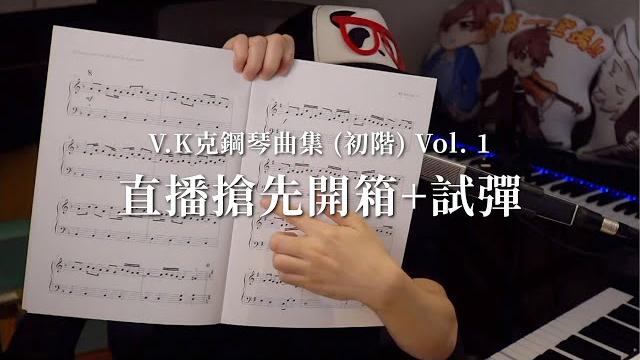 V.K克鋼琴曲集 (初階) Vol. 1
直播搶先開箱+試彈